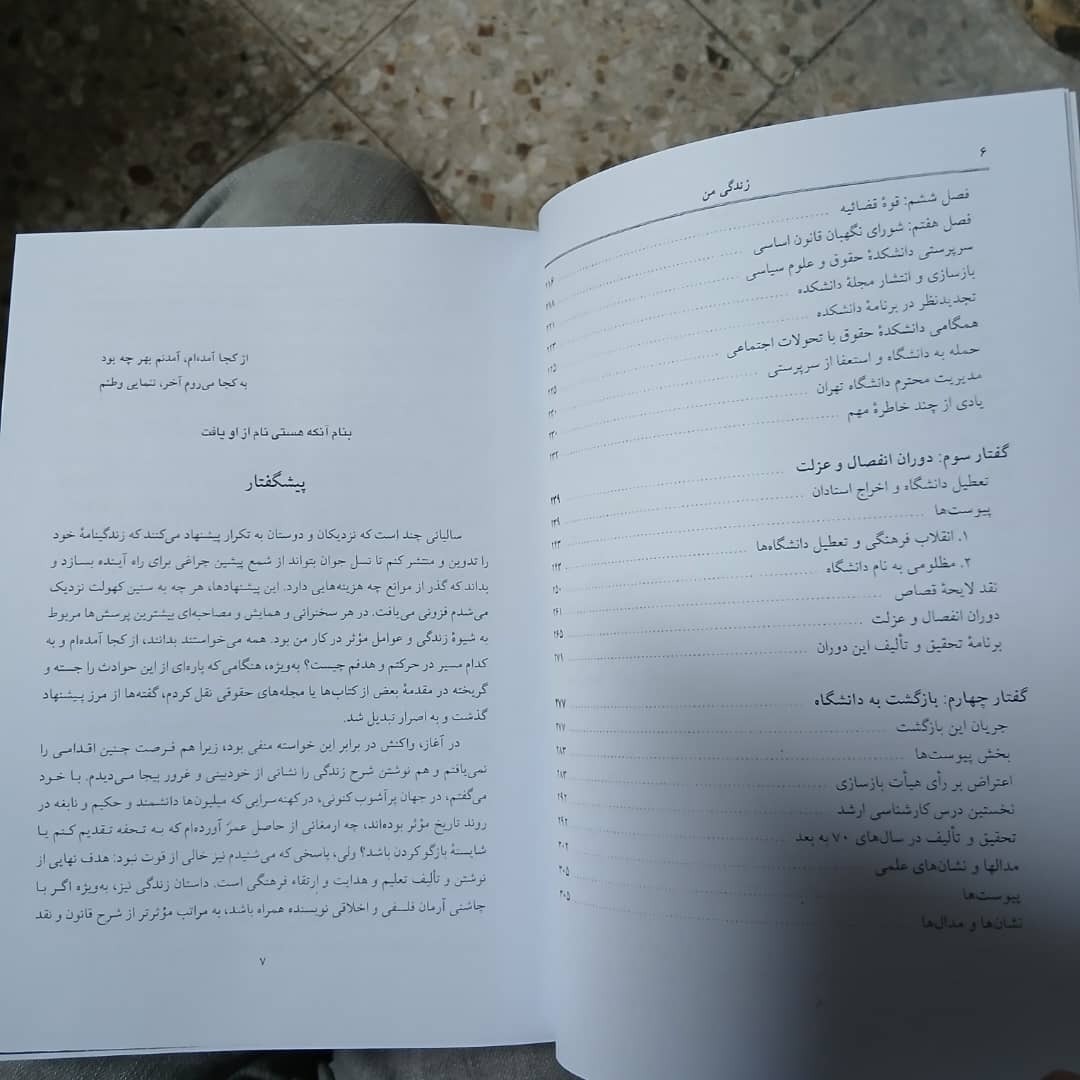 ۶
زندگی من
فصل ششم: قوهٔ قضائیه
فصل هفتم: شورای نگهبان قانون اساسی ۲۱۶
سرپرستی دانشکدهٔ حقوق و علوم سیاسی
بازسازی و انتشار مجلهٔ دانشکده ۲۲۱
تجدیدنظر در برنامهٔ دانشکده ۲۲۳
همگامی دانشکدهٔ حقوق با تحولات اجتماعی
حمله به دانشگاه و استعفا از سرپرستی
مدیریت محترم دانشگاه تهران ۲۳۰
یادی از چند خاطرهٔ مهم ۲۳۲
گفتار سوم: دوران انفصال و عزلت ۲۳۹
تعطیل دانشگاه و اخراج استادان ۲۳۹
پیوست‌ها ۲۴۳
۱. انقلاب فرهنگی و تعطیل دانشگاه‌ها ۲۴۳
۲. مظلومی به نام دانشگاه ۲۵۰
نقد لایحهٔ قصاص ۲۶۱
دوران انفصال و عزلت ۲۶۵
برنامهٔ تحقیق و تألیف این دوران ۲۷۱
گفتار چهارم: بازگشت به دانشگاه ۲۷۷
جریان این بازگشت ۲۷۷
بخش پیوست‌ها ۲۸۳
اعتراض بر رأی هیأت بازسازی ۲۸۳
نخستین درس کارشناسی ارشد ۲۹۲
تحقیق و تألیف در سال‌های ۷۰ به بعد ۲۹۲
مدالها و نشان‌های علمی ۳۰۲
پیوست‌ها ۳۰۵
نشان‌ها و مدال‌ها ۳۰۵
از کجا آمده‌ام، آمدنم بهر چه بود
به کجا می‌روم آخر، ننمایی وطنم
بنام آنکه هستی نام از او یافت
پیشگفتار
سالیانی چند است که نزدیکان و دوستان به تکرار پیشنهاد می‌کنند که زندگینامهٔ خود
را تدوین و منتشر کنم تا نسل جوان بتواند از شمع پیشین چراغی برای راه آینده بسازد و
بداند که گذر از موانع چه هزینه‌هایی دارد. این پیشنهادها، هر چه به سنین کهولت نزدیک
می‌شدم فزونی می‌یافت. در هر سخنرانی و همایش و مصاحبه‌ای بیشترین پرسش‌ها مربوط
به شیرهٔ زندگی و عوامل مؤثر در کار من بود. همه می‌خواستند بدانند، از کجا آمده‌ام و به
کدام مسیر در حرکتم و هدفم چیست؟ به‌ویژه، هنگامی که پاره‌ای از این حوادث را جسته و
گریخته در مقدمهٔ بعض از کتاب‌ها یا مجله‌های حقوقی نقل کردم، گفته‌ها از مرز پیشنهاد
گذشت و به اصرار تبدیل شد.
در آغاز، واکنش در برابر این خواسته منفی بود، زیرا هم فرصت چنین اقدامی را
نمی‌یافتم و هم نوشتن شرح زندگی را نشانی از خودبینی و غرور بیجا می‌دیدم. با خود
می‌گفتم، در جهان پرآشوب کنونی، در کهنه‌سرایی که میلیون‌ها دانشمند و حکیم و نابغه در
روند تاریخ مؤثر بوده‌اند، چه ارمغانی از حاصل عمر آورده‌ام که به تحفه تقدیم کنم یا
شایستهٔ بازگو کردن باشد؟ ولی، پاسخی که می‌شنیدم نیز خالی از قوت نبود: هدف نهایی از
نوشتن و تألیف تعلیم و هدایت و ارتقاء فرهنگی است. داستان زندگی نیز، به‌ویژه اگر با
چاشنی آرمان فلسفی و اخلاقی نویسنده همراه باشد، به مراتب مؤثرتر از شرح قانون و نقد
۷